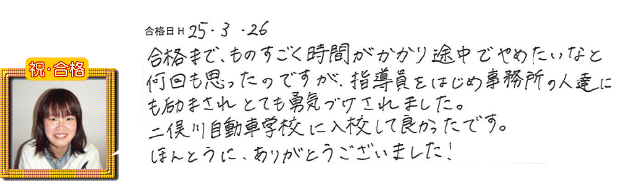 合格日 H 25・3・26
合格まで、ものすごく時間がかかり途中でやめたいなと
何回も思ったのですが、指導員をはじめ事務所の人達に
も励まされとても勇気づけされました。
二俣川自動車学校に入校して良かったです。
ほんとうに、ありがとうございました!
祝・合格